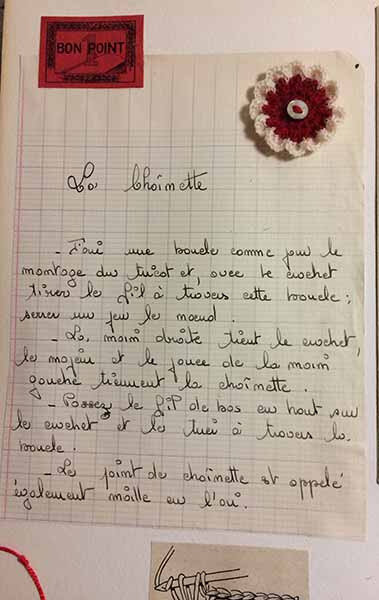 BON POINT
1
La Chaînette
- Faire une boucle comme pour le
montage du tricot et, avec le crochet
tirer le fil à travers cette boucle ;
serrer un peu le nœud.
- La main droite tient le crochet,
le majeur et le pouce de la main
gauche tiennent la chaînette.
- Passez le fil de bas en haut sur
le crochet et le tirer à travers la
boucle.
- Le point de chaînette est appelé
également maille en l'air.